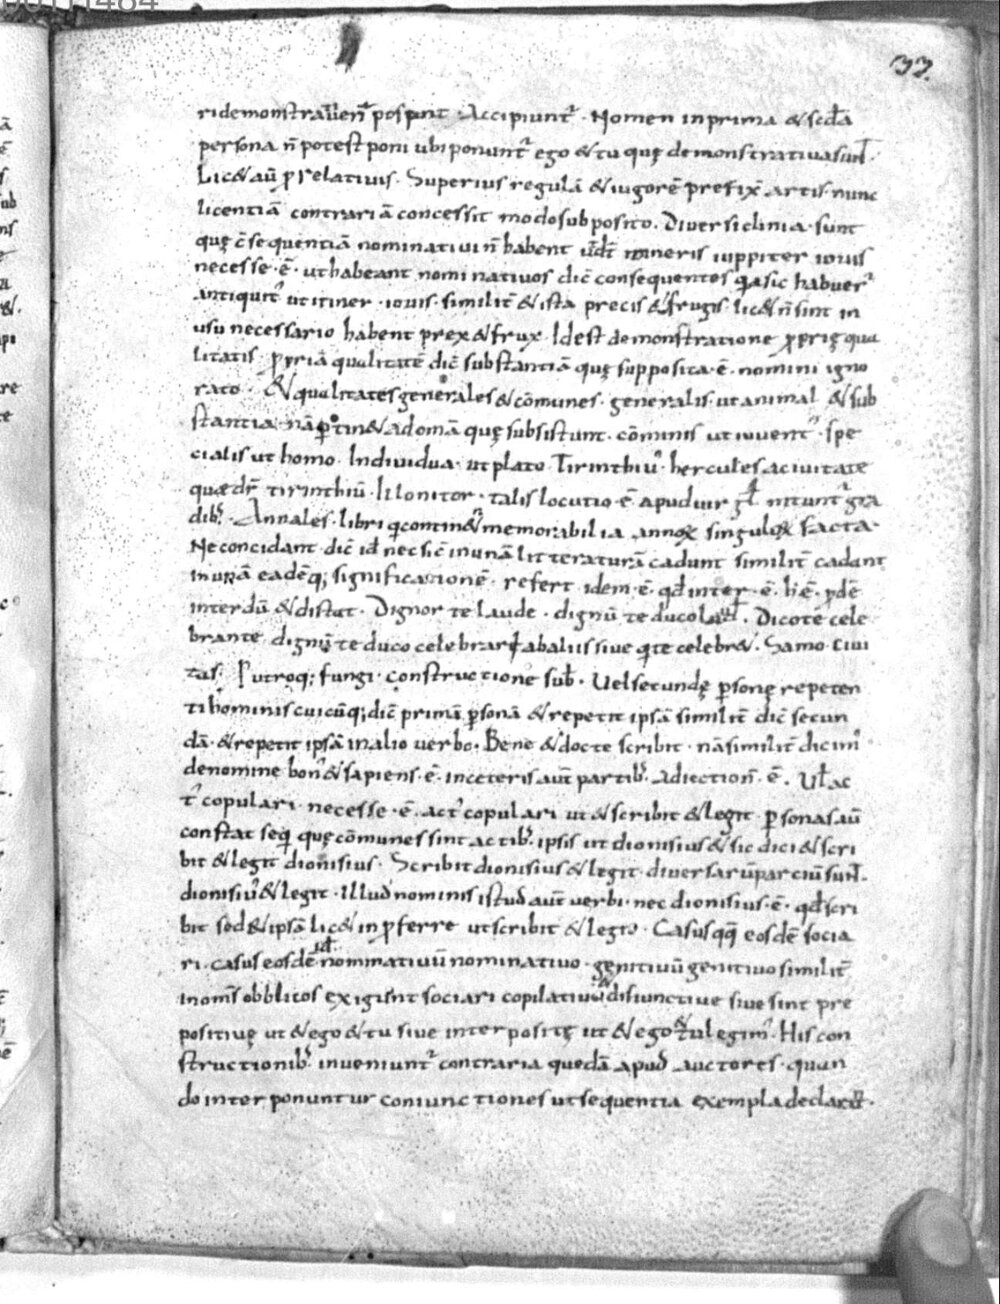 33.
ridemonstraverit possunt · Accipiunt᷑ · Nomen in prima & scd̄ā
persona n̄ potest poni ubi ponunt᷑ ego & tu quę demonstrativa sunt.
Lic& aū p relativis · Superius regulā & iugorē prefix̄ artis nunc
licentiā contrariā concessit modo subposito. Diversiclinia · sunt
quę c̄sequentiā nominativi n̄ habent itineris iuppiter iovis
necesse · ē · ut habeant nominativos dic̄ consequentes q̄asic habuer᷑
antiquit᷑ ut itiner · iovis · similit̄ & ista precis & frugis · lic& n̄ sint in
usu necessario habent prex & frux · Id est demonstratione p̱prię qua
litatis · p̱priā qualitatē dic̄ substantiā quę supposita · ē · nomini igno
rato · & qualitates generales & cōmunes · generalis · ut animal & sub
stantia · nā p̱tin& ad omā quę subsistunt · cōmunis ut iuvent᷑ · spe
cialis ut homo · Individua · ut plato · Tirinthiu᷑ · hercules a civitate
quæ dr̄ tirinthiū · lilonitor · talis locutio · ē · apud nituntur gra
dib; · Annales · libri q contin& memorabilia annoꝝ singuloꝝ facta ·
Ne concidant · dic̄ id nec sic̄ in unā litteraturā cadunt similit̄ cadant
in unā eadēq; significationē · refert idem · ē · qđ inter · ē · h̄ ē · p̱dē
interdū & distat · Dignor te laude · dignū te duco laude. Dico te cele
brante dignū te duco celebrari ab aliis sive q te celebr& · Samo · civi
tas · Putroq; fungi · constructione sub · Vel secundę p̱sonę repeten
ti hominis cuicūq; dic̄ primā p̱sonā & repetit ipsā similit̄ dic̄ secun
dā · & repetit ipsā in alio verbo · Bene & docte scribit · nā similit̄ dicim᷑
de nomine bon᷑ & sapiens · ē · in ceteris aut̄ partib; adiection̄ · ē · Vł ac
t᷑ copulari · necesse · ē · act᷑ copulari ut & scribit & legit · p̱sonas aū
constat seq̄ quę cōmunes sint actib; ipsis ut dionisius & sic dici & scri
bit & legit dionisius · Scribit dionisius & legit · diversarū parciū sunt.
dionisiu᷑ & legit · Illud nominis istud aut̄ verbi · nec dionisius · ē · qđ scri
bit sed & ipsā lic& inp̱ferre ut scribit & lego · Casus qq̄ eosdē socia
ri · casus eosdē id̄ nominativū nominativo · genitivū genitivo similit̄
in om̄s obblicos exigunt sociari copilative disiunctive sive sint pre
positivę ut & ego & tu sive interpositę ut & ego & tu legim᷑ · His con
structionib; inveniunt᷑ contraria quedā apud auctores · quan
do interponuntur coniunctiones ut sequentia exempla declarant ·